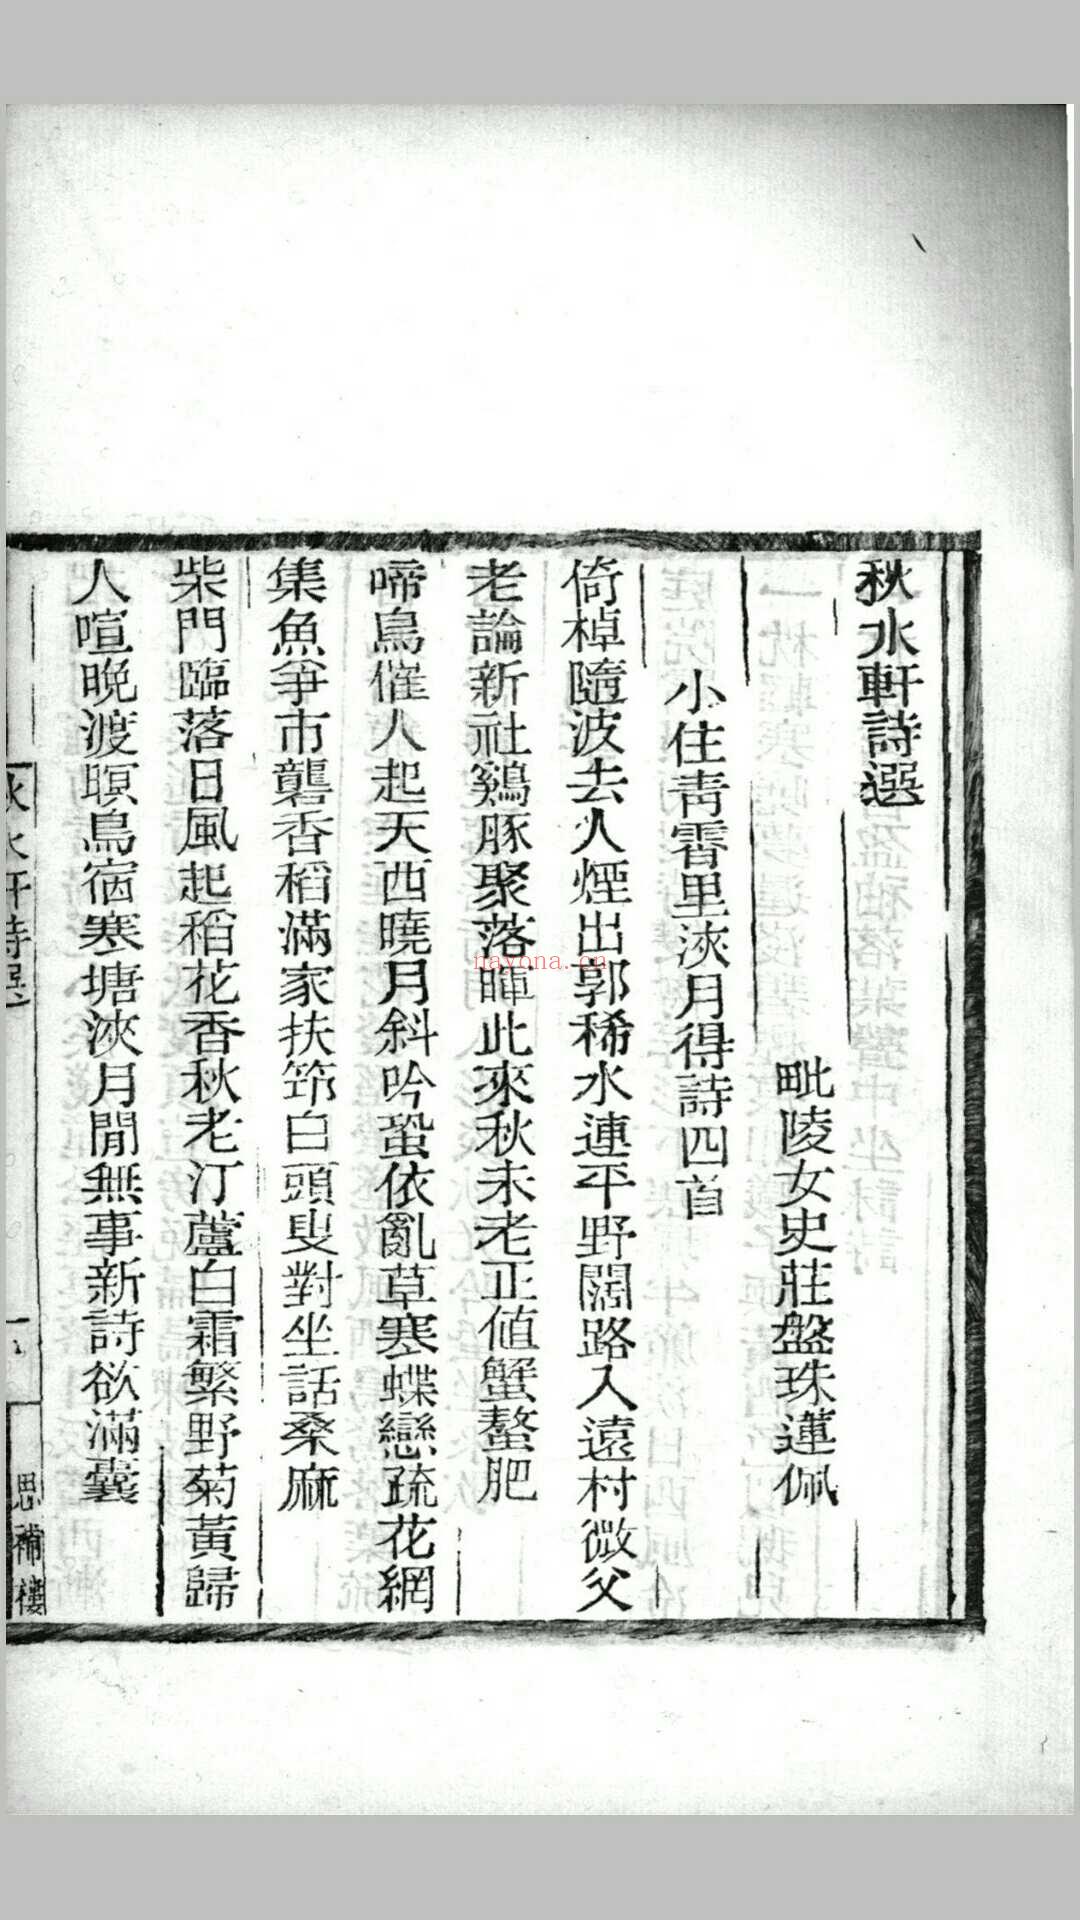 秋水軒詩選
毗陵女史莊盤珠蓮佩
小住青霤里浹月得詩四首
倚棹隨波去人煙出郭稀水連平野闊路入遠村微父
老論新社鷄豚聚落暉此來秋未老正值蟹螯肥
啼鳥催人起天西曉月斜吟蛩依亂草寒蝶戀疏花網
集魚爭市礱香稻滿家扶筇白頭叟對坐話桑麻
柴門臨落日風起稻花香秋老汀蘆白霜繁野菊黃歸
人喧晚渡暝鳥宿寒塘浹月閒無事新詩欲滿囊
秋水軒詩選
一
思補樓
nayona.cn